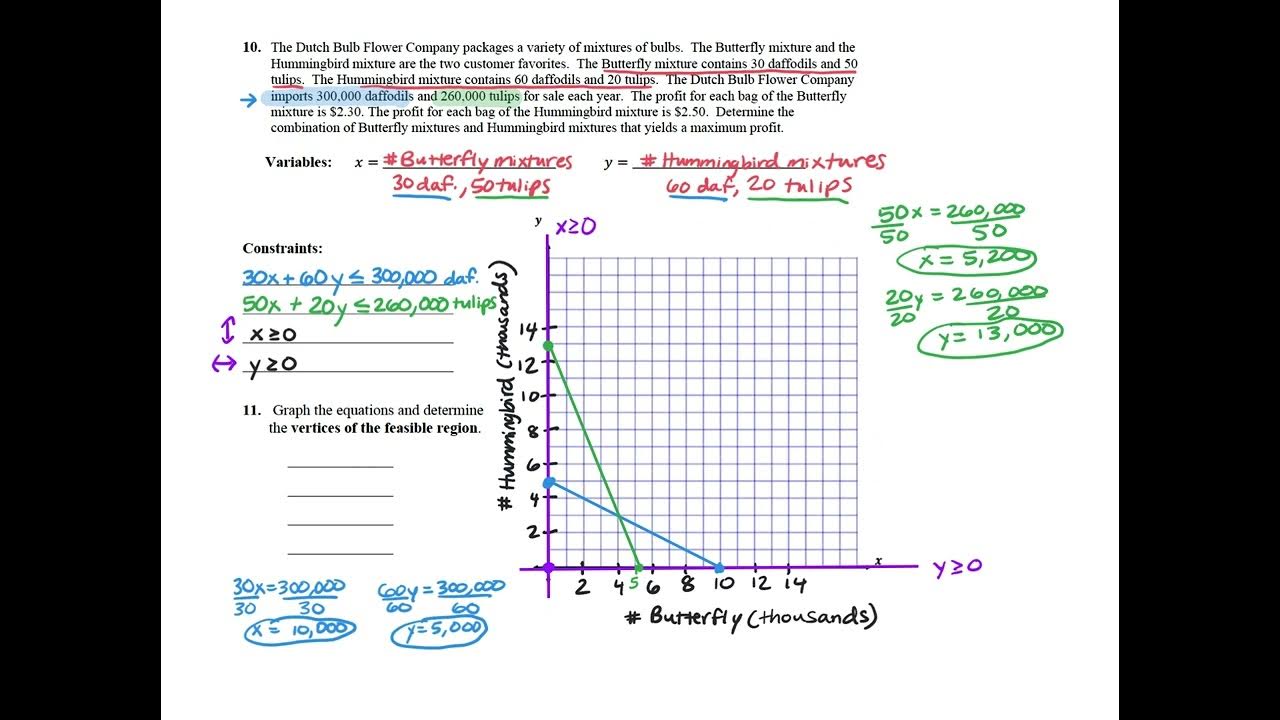 10. The Dutch Bulb Flower Company packages a variety of mixtures of bulbs. The Butterfly mixture and the
Hummingbird mixture are the two customer favorites. The Butterfly mixture contains 30 daffodils and 50
tulips. The Hummingbird mixture contains 60 daffodils and 20 tulips. The Dutch Bulb Flower Company
imports 300,000 daffodils and 260,000 tulips for sale each year. The profit for each bag of the Butterfly
mixture is $2.30. The profit for each bag of the Hummingbird mixture is $2.50. Determine the
combination of Butterfly mixtures and Hummingbird mixtures that yields a maximum profit.
Variables: x = # Butterfly mixtures y = # Hummingbird mixtures
30 daf., 50 tulips 60 daf, 20 tulips
Constraints:
30x + 60y ≤ 300,000 daf.
50x + 20y ≤ 260,000 tulips
↕ x ≥ 0
↔ y ≥ 0
11. Graph the equations and determine
the vertices of the feasible region.
30x = 300,000
30 30
x = 10,000
60y = 300,000
60 60
y = 5,000
y x ≥ 0
# Hummingbird (thousands)
14
12
10
8
6
4
2
2 4 5 6 8 10 12 14
x y ≥ 0
# Butterfly (thousands)
50x = 260,000
50 50
x = 5,200
20y = 260,000
20 20
y = 13,000